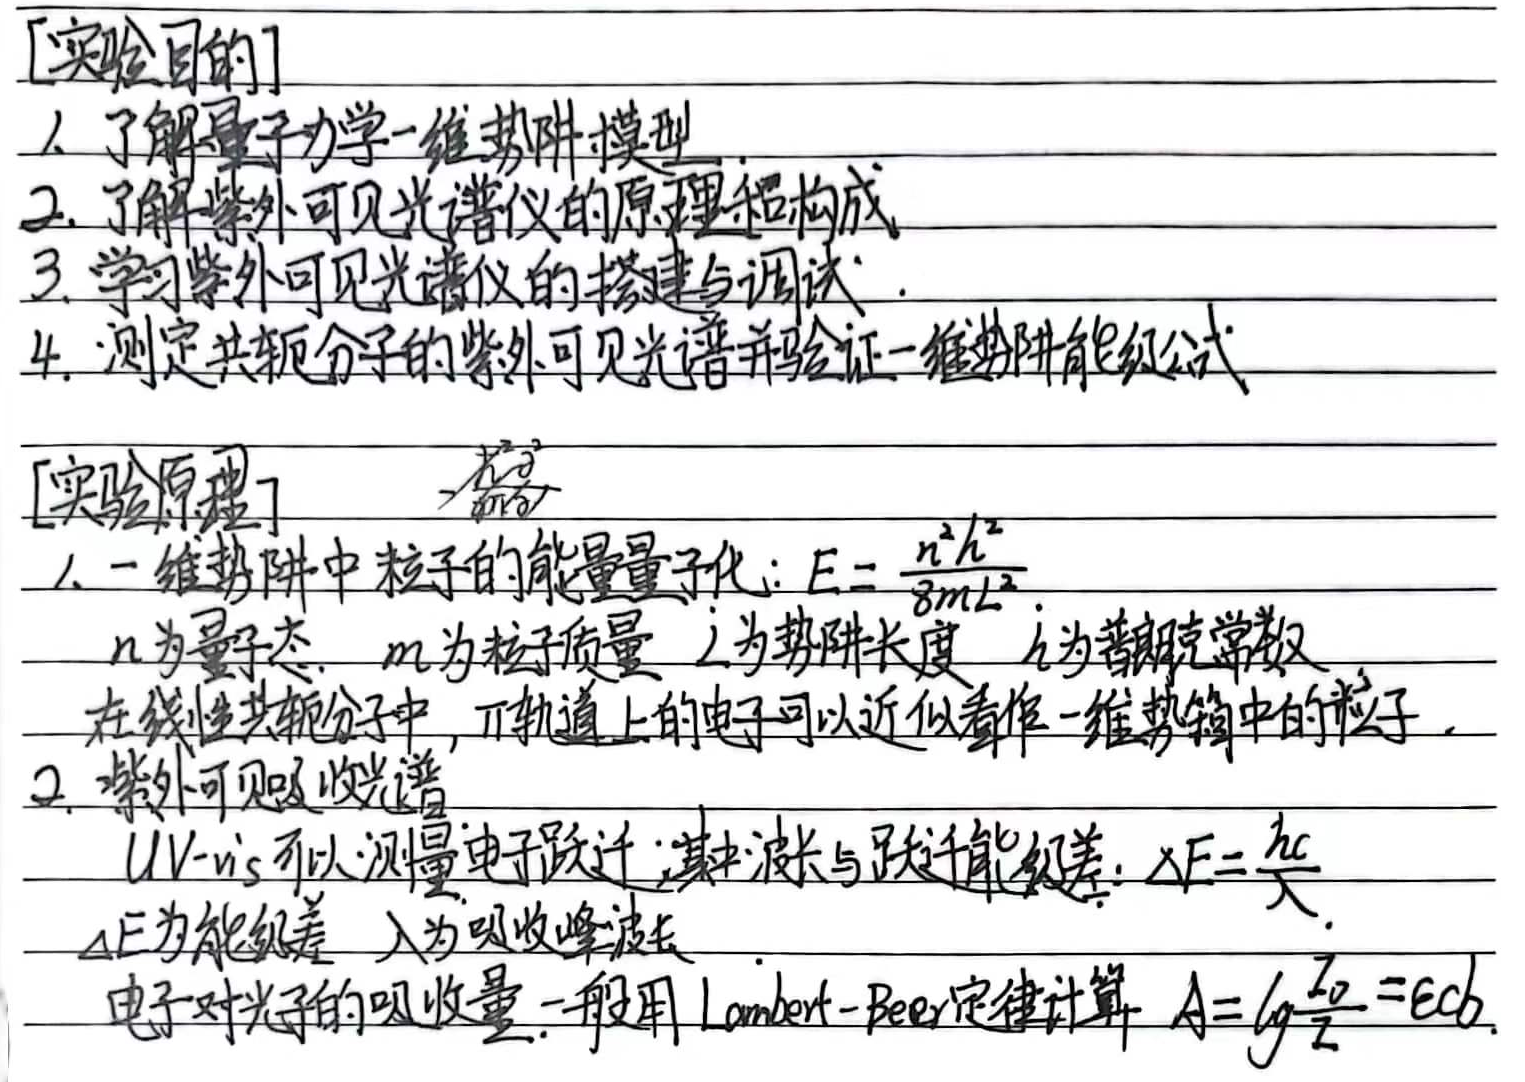 [实验目的]
1. 了解量子力学一维势阱模型.
2. 了解紫外可见光谱仪的原理和构成
3. 学习紫外可见光谱仪的搭建与调试.
4. 测定共轭分子的紫外可见光谱并验证一维势阱能级公式
[实验原理]
1. 一维势阱中粒子的能量量子化: E = n²h²/8mL².
n为量子态. m为粒子质量 L为势阱长度 h为普朗克常数
在线性共轭分子中, π轨道上的电子可以近似看作一维势箱中的粒子.
2. 紫外可见吸收光谱
UV-vis 可以测量电子跃迁,其中波长与跃迁能级差: ΔE = hc/λ.
ΔE为能级差 λ为吸收峰波长.
电子对光子的吸收量一般用 Lambert-Beer定律计算 A = lg I₀/I = εcb.